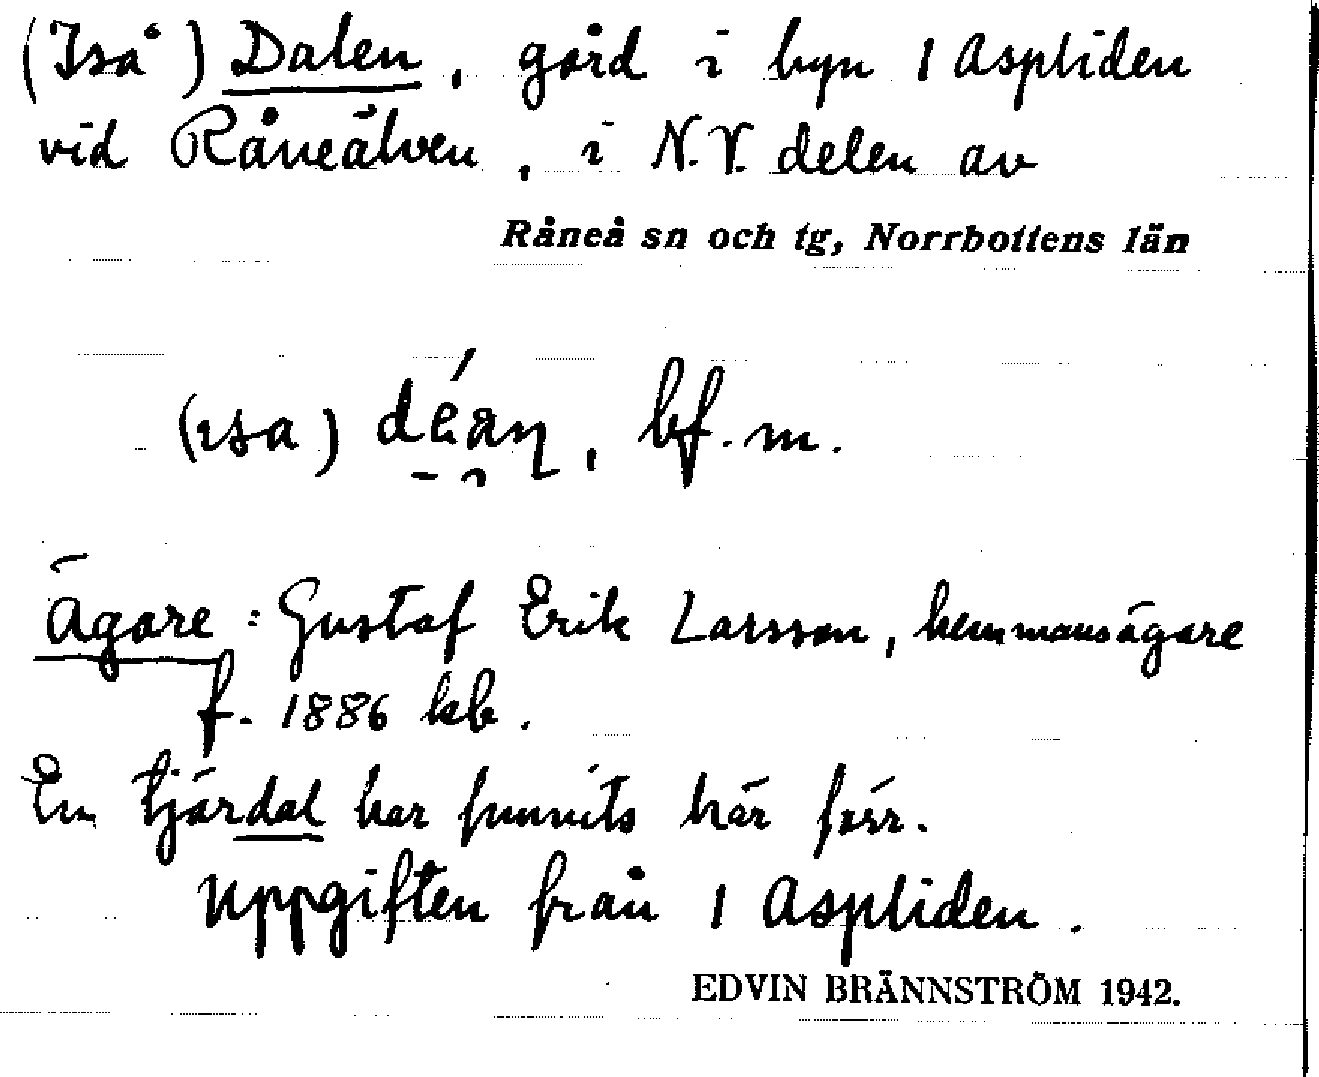 (Iså) Dalen, gård i byn 1 Aspliden
vid Råneälven, i N.V. delen av
Råneå sn och tg, Norrbottens län
bf. m.
Ägare: Gustaf Erik Larsson, hemmansägare
f. 1886 kb.
En tjärdal har funnits här förr.
Uppgiften från 1 Aspliden.
EDVIN BRÄNNSTRÖM 1942.